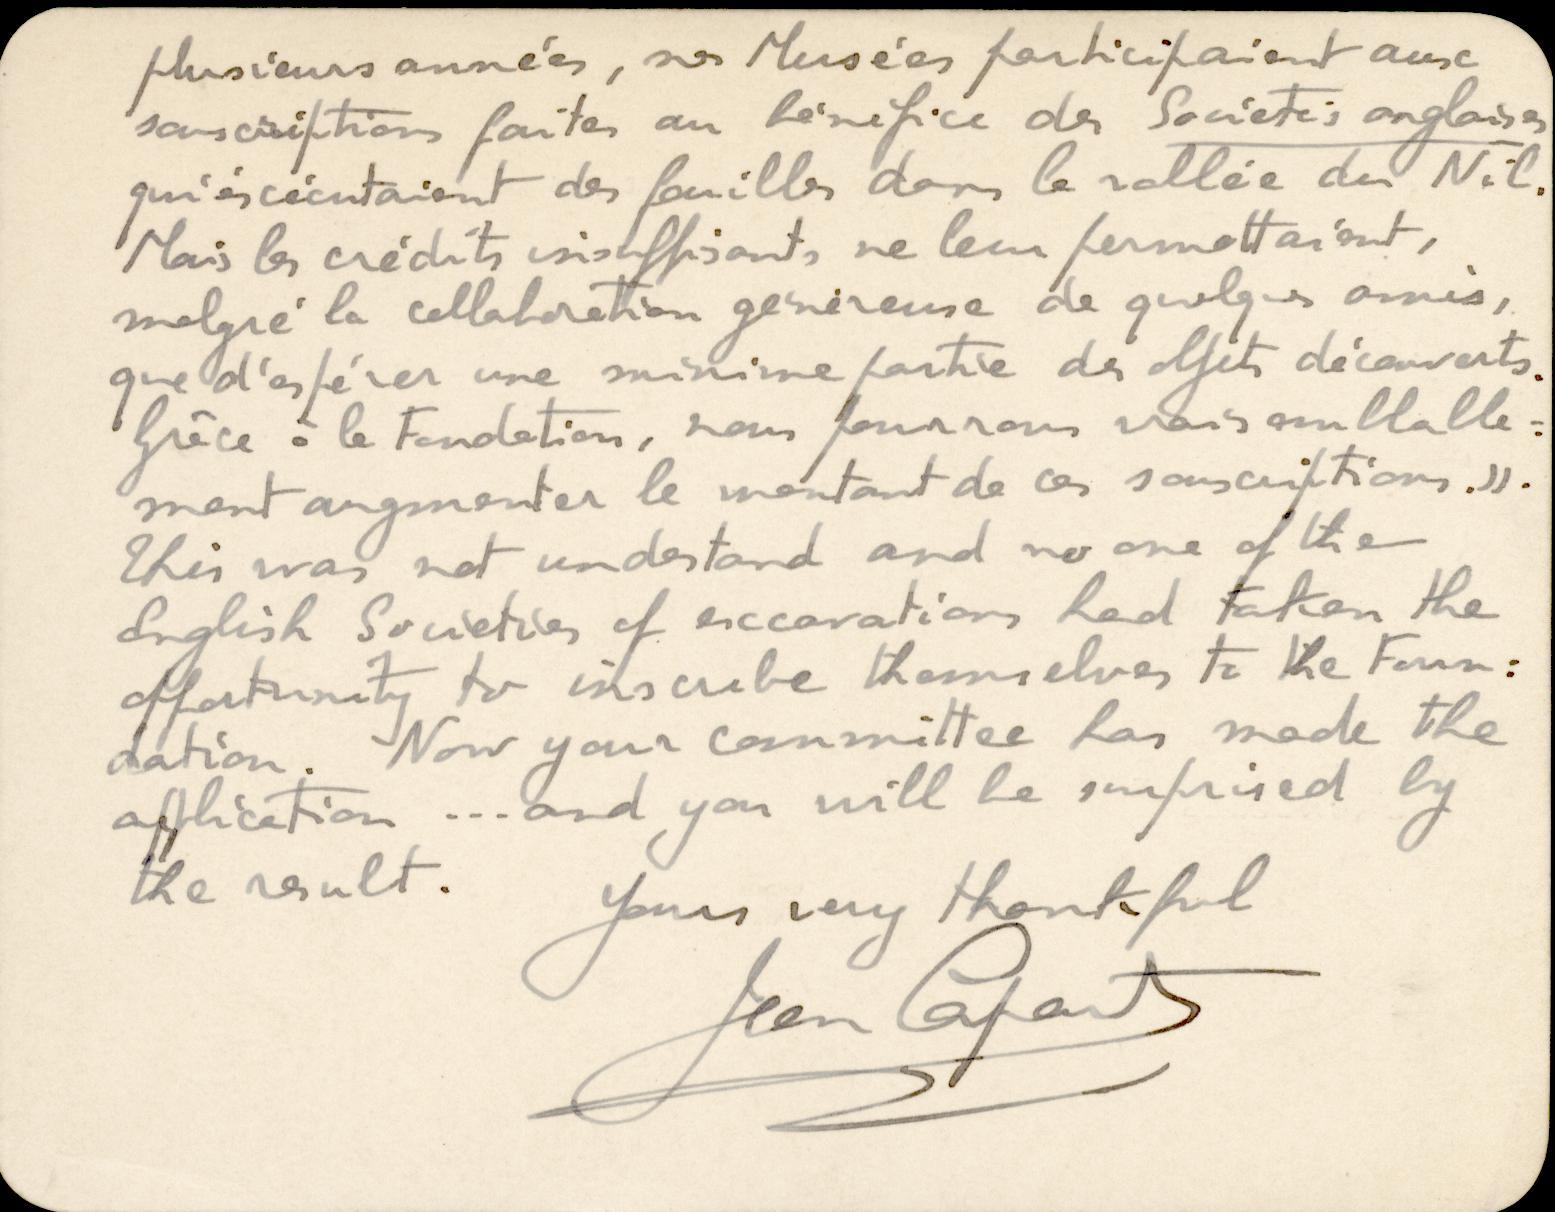 plusieurs années, nos Musées participaient aux
souscriptions faites au bénéfice des Sociétés anglaises
qui éxécutaient des fouilles dans la vallée du Nil.
Mais les crédits insuffisants ne leur permettaient,
malgré la collaboration généreuse de quelques amis,
que d'espérer une minime partie des objets découverts.
Grâce à la Fondation, nous pourrons vraisemblable=
ment augmenter le montant de ces souscriptions.».
This was not understand and no one of the
English Societies of excavations had taken the
opportunity to inscribe themselves to the Foun:
dation. Now your committee has made the
application ... and you will be surprised by
the result.
Yours very thankful
Jean Capart